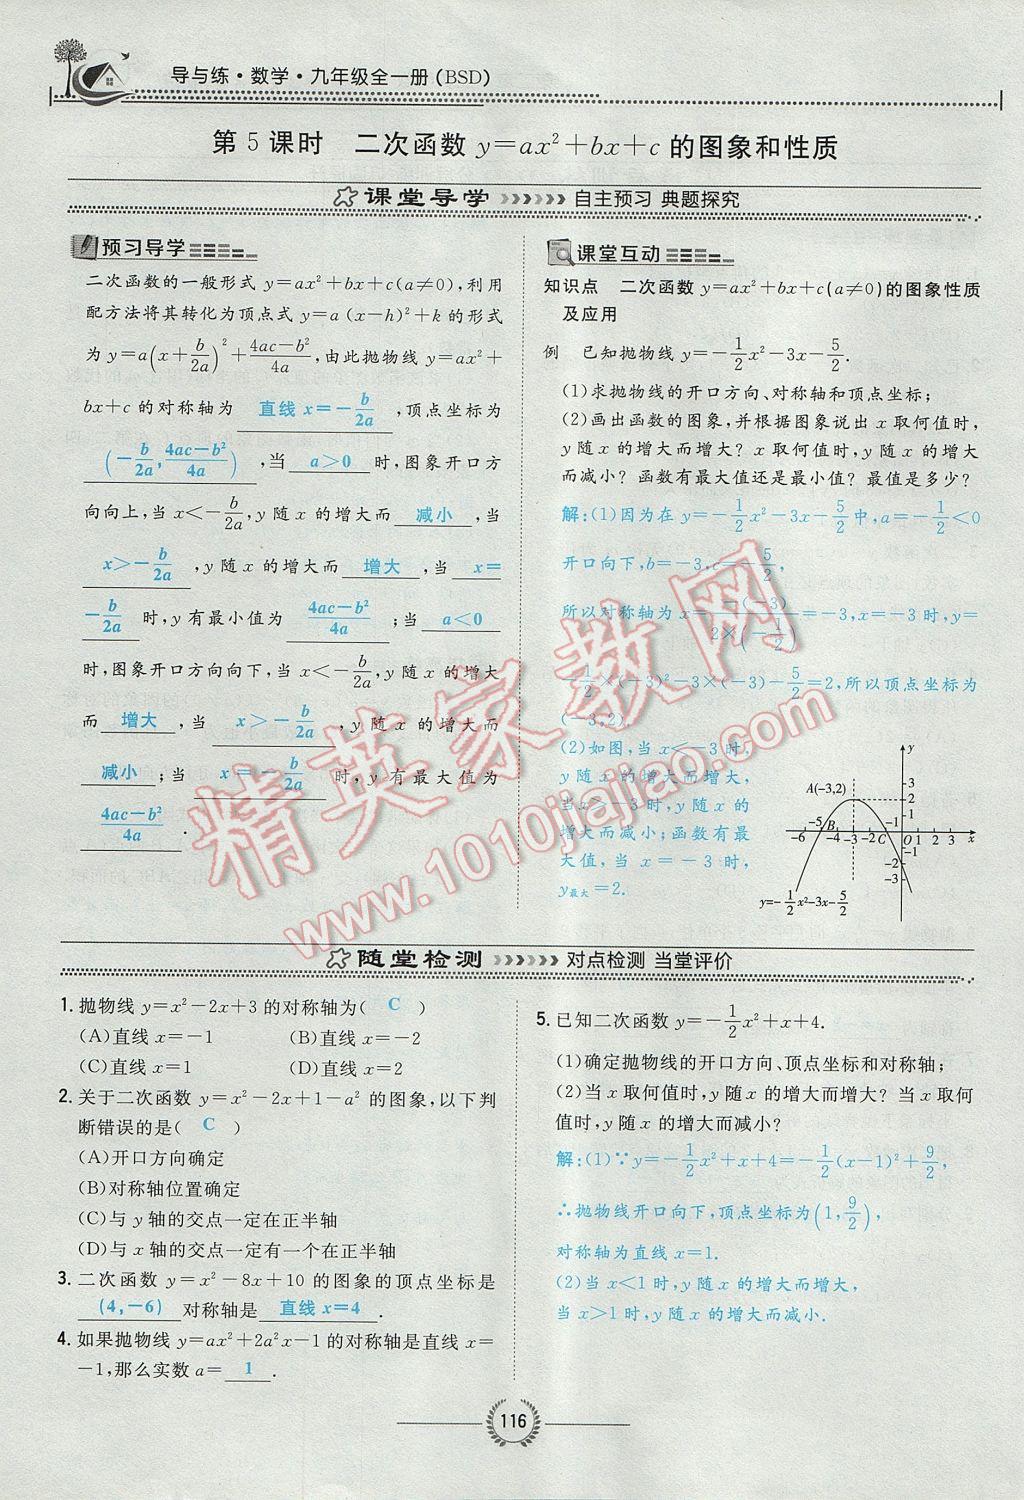 导与练·数学·九年级全一册(BSD)
第5课时　二次函数 y=ax²+bx+c 的图象和性质
课堂导学 自主预习 典题探究
预习导学
二次函数的一般形式 y=ax²+bx+c(a≠0),利用
配方法将其转化为顶点式 y=a(x-h)²+k 的形式
为 y=a(x+b/2a)²+(4ac-b²)/4a,由此抛物线 y=ax²+
bx+c 的对称轴为 直线 x=-b/2a ,顶点坐标为
(-b/2a,(4ac-b²)/4a) ,当 a>0 时,图象开口方
向向上,当 x<-b/2a,y 随 x 的增大而 减小 ,当
x>-b/2a ,y 随 x 的增大而 增大 ,当 x=
-b/2a 时,y 有最小值为 (4ac-b²)/4a ;当 a<0
时,图象开口方向向下,当 x<-b/2a,y 随 x 的增大
而 增大 ,当 x>-b/2a ,y 随 x 的增大而
减小 ;当 x=-b/2a 时,y 有最大值为
(4ac-b²)/4a .
课堂互动
知识点　二次函数 y=ax²+bx+c(a≠0)的图象性质
及应用
例　已知抛物线 y=-1/2x²-3x-5/2.
(1)求抛物线的开口方向、对称轴和顶点坐标;
(2)画出函数的图象,并根据图象说出 x 取何值时,
y 随 x 的增大而增大? x 取何值时,y 随 x 的增大
而减小? 函数有最大值还是最小值? 最值是多少?
解:(1)因为在 y=-1/2x²-3x-5/2中,a=-1/2<0
开口向下,b=-3,c=-5/2,
所以对称轴为 x=-(-3)/(2×(-1/2))=-3,x=-3 时,y=
-1/2×(-3)²-3×(-3)-5/2=2,所以顶点坐标为
(-3,2).
(2)如图,当 x<-3 时,
y 随 x 的增大而增大,
当 x>-3 时,y 随 x 的
增大而减小;函数有最
大值,当 x=-3 时,
y最大=2.
y
A(-3,2)
3
2
1
-6 -5 -4 -3 -2 -1 O 1 2 3 x
B C
-1
-2
-3
y=-1/2x²-3x-5/2
精英家教网
www.1010jiajiao.com
随堂检测 对点检测 当堂评价
1.抛物线 y=x²-2x+3 的对称轴为( C )
(A)直线 x=-1　(B)直线 x=-2
(C)直线 x=1　(D)直线 x=2
2.关于二次函数 y=x²-2x+1-a² 的图象,以下判
断错误的是( C )
(A)开口方向确定
(B)对称轴位置确定
(C)与 y 轴的交点一定在正半轴
(D)与 x 轴的交点一定有一个在正半轴
3.二次函数 y=x²-8x+10 的图象的顶点坐标是
(4,-6) 对称轴是 直线 x=4 .
4.如果抛物线 y=ax²+2a²x-1 的对称轴是直线 x=
-1,那么实数 a= 1 .
5.已知二次函数 y=-1/2x²+x+4.
(1)确定抛物线的开口方向、顶点坐标和对称轴;
(2)当 x 取何值时,y 随 x 的增大而增大? 当 x 取何
值时,y 随 x 的增大而减小?
解:(1)∵y=-1/2x²+x+4=-1/2(x-1)²+9/2,
∴抛物线开口向下,顶点坐标为(1,9/2),
对称轴为直线 x=1.
(2)当 x<1 时,y 随 x 的增大而增大,
当 x>1 时,y 随 x 的增大而减小.
116